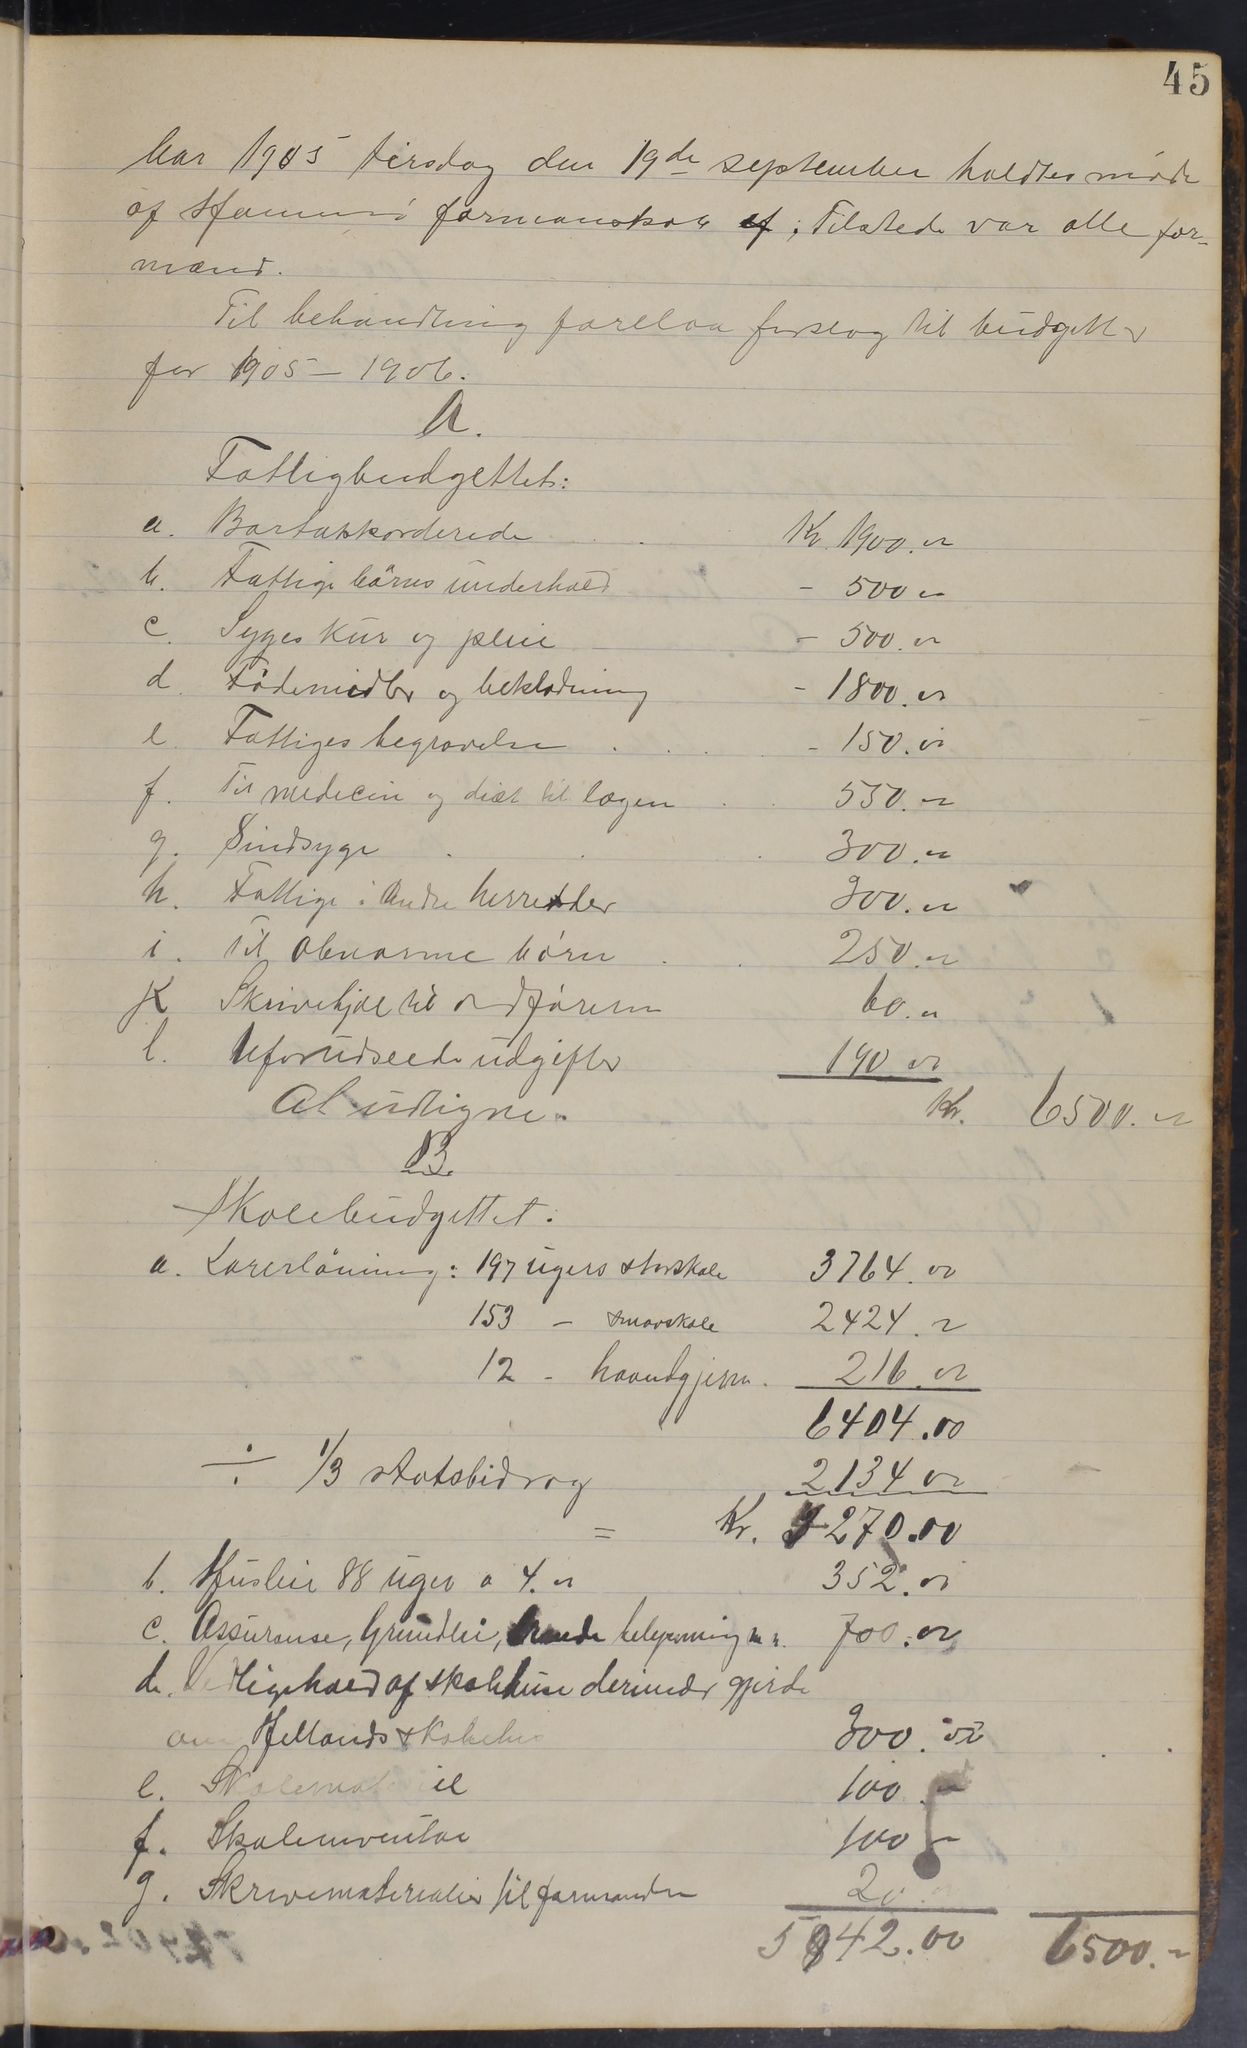 45
Aar 1905 tirsdag den 19de september holdtes møde
af Hamarø formanskab ; Tilstede var alle for-
mænd.
Til behandling forelaa forslag til budgetter
for 1905 – 1906.
A.
Fattigbudgettet:
a. Bortakkorderede . . Kr. 1900.00
b. Fattige børns underhold - 500 00
c. Syges kur og pleie - 500.00
d. Fødemidler og beklædning - 1800.00
e. Fattiges begravelse . . . - 150.00
f. Til medicin og diæt til lægen . . 550.00
g. Sindsyge . . . 300.00
h. Fattige i andre herreder 300.00
i. Til abnorme børn . . 250.00
k Skrivehjælp til ordføreren 60.00
l. Uforudseede udgifter 190 00
At udligne. Kr. 6500.00
B.
Skolebudgettet:
a. Lærerlønning: 197 ugers storskole 3764.00
153 – smaaskole 2424.00
12 - haandgjern. 216.00
6404.00
÷ 1/3 statsbidrag 2134 00
= Kr. 4270.00
b. Husleie 88 uger a 4.00 352.00
c. Assuranse, Grundlei, brænde belysning m. m. 700.00
d. Vedligehold af skolehuse derunder gjerde
om Hellands skolehus 300.00
e. Skolemateriel 100.00
f. Skoleinventar 100 –
g. Skrivematerialier til formanden 20.00
5842.00 6500.–